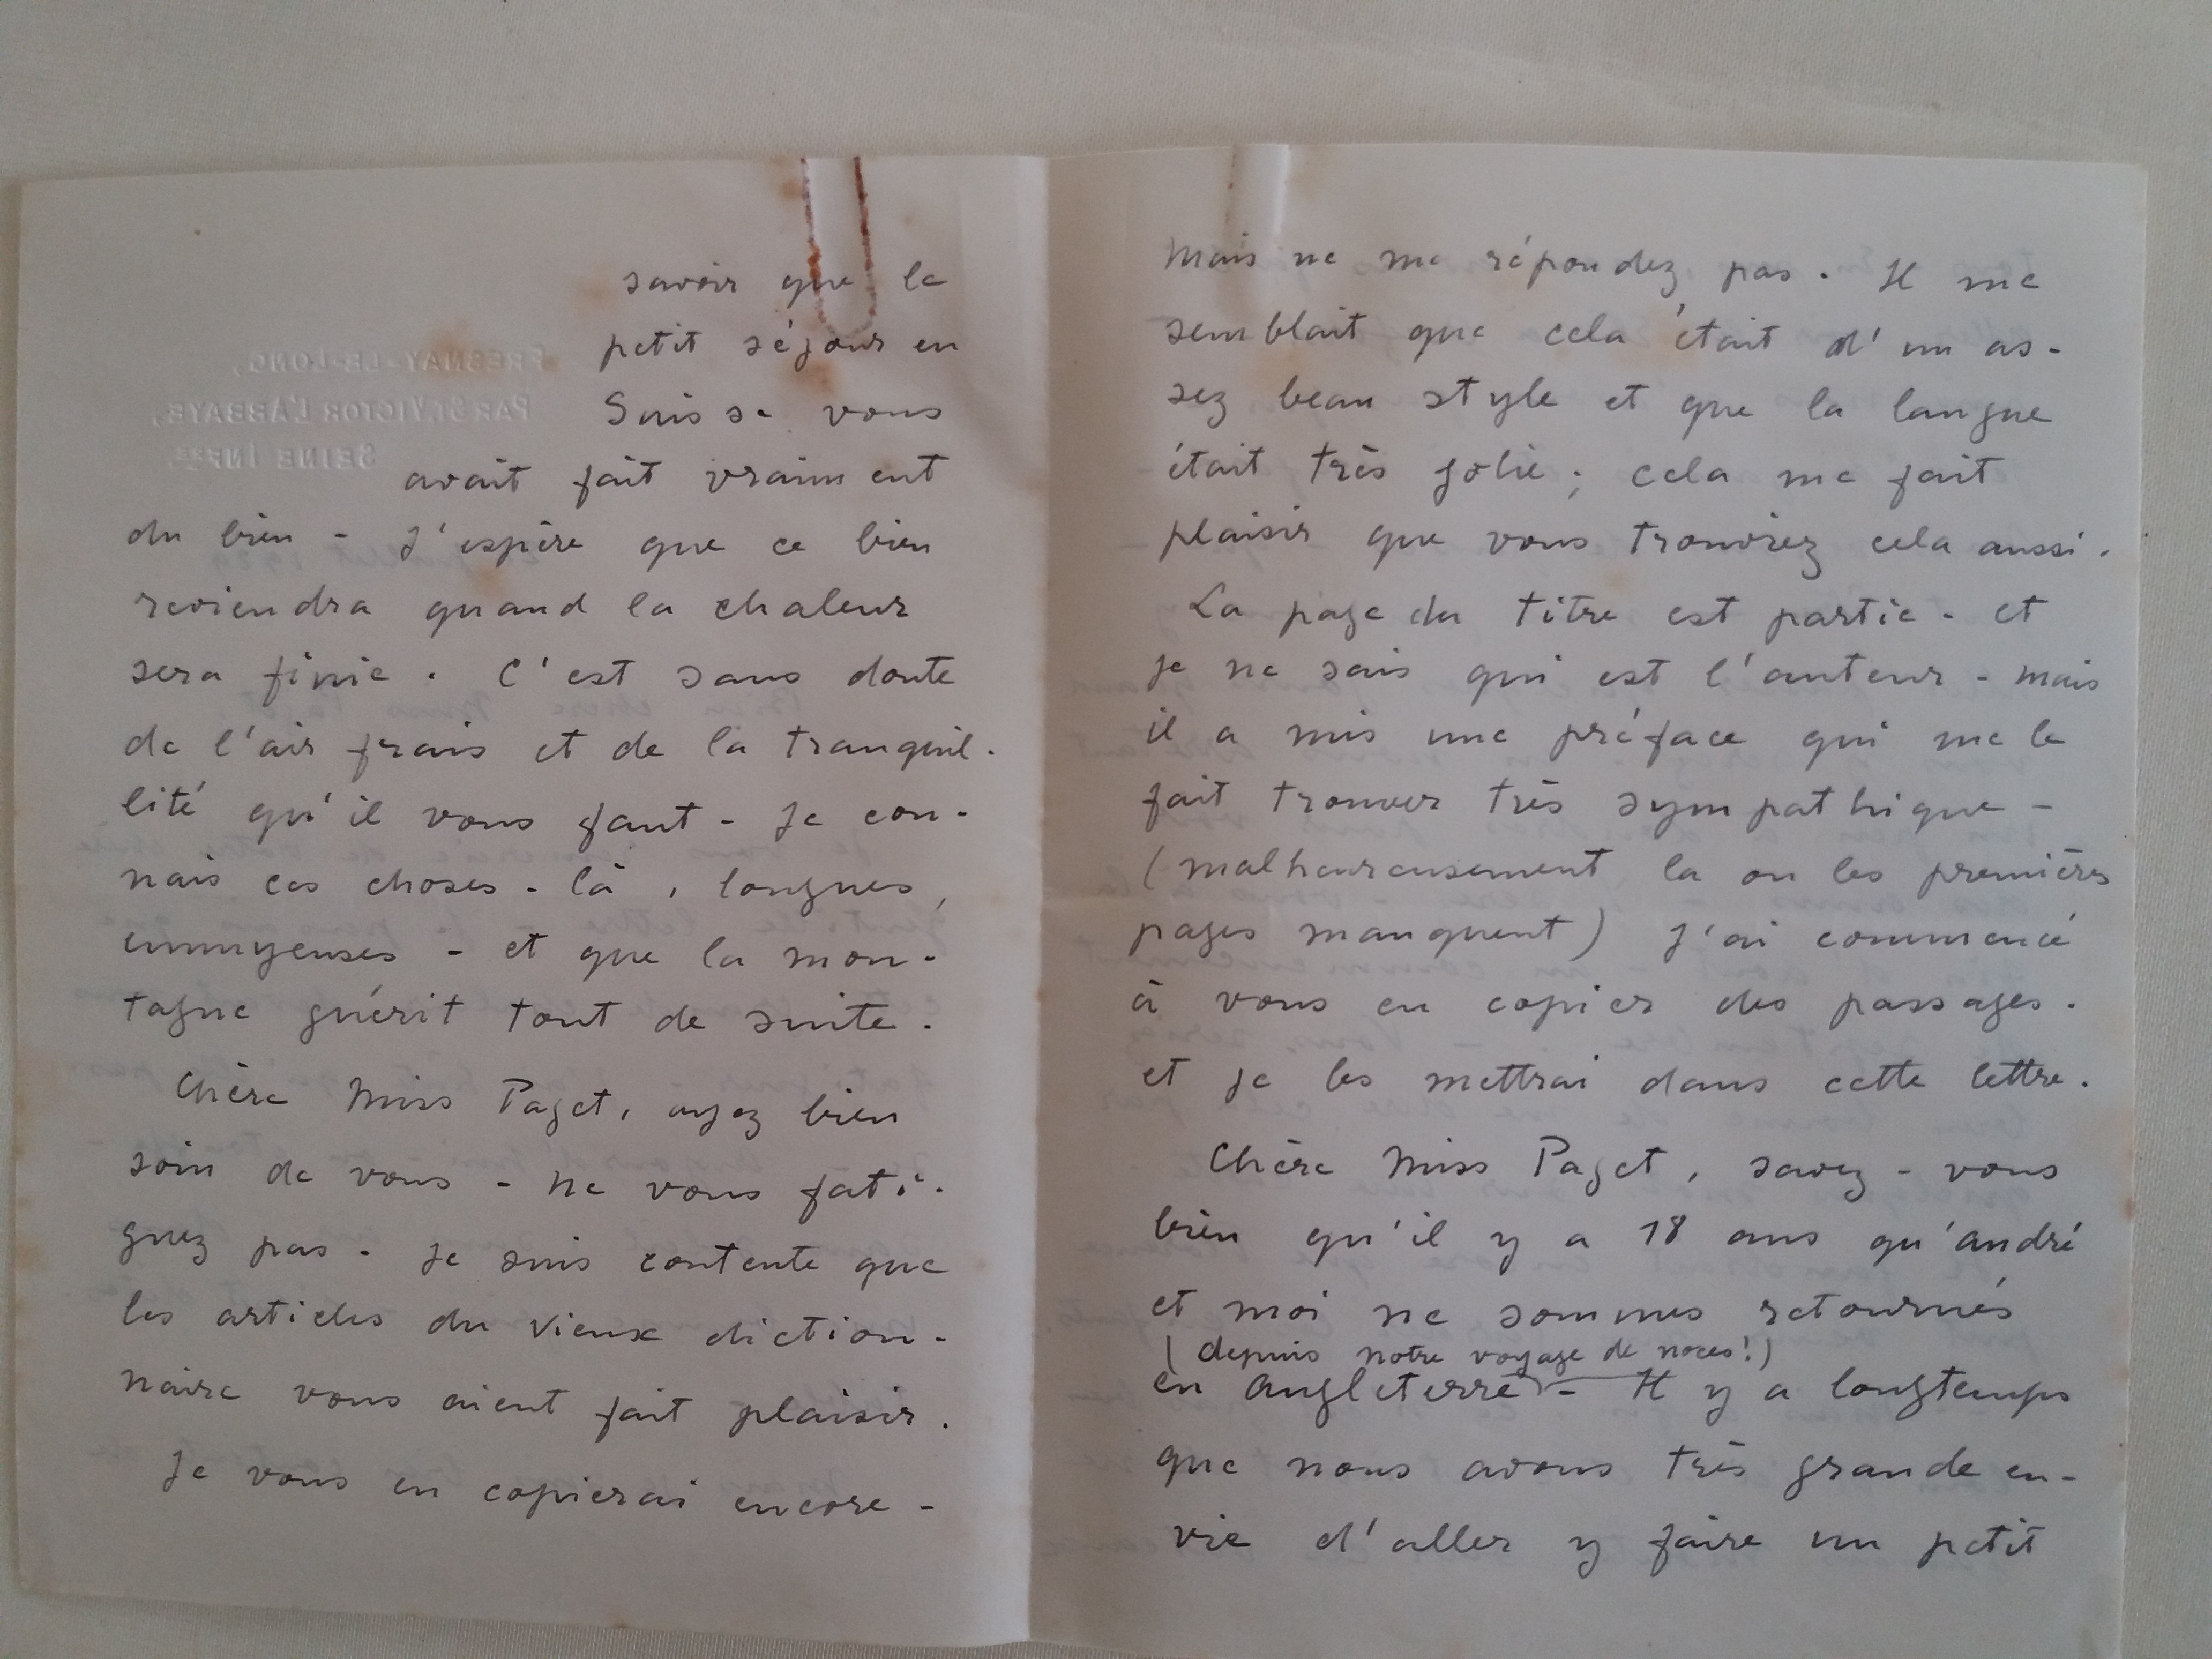 savoir que le
petit séjour en
Suisse vous
avait fait vraiment
du bien - J'espère que ce bien
reviendra quand la chaleur
sera finie. C'est sans doute
de l'air frais et de la tranquil-
lité qu'il vous faut - Je con-
nais ces choses-là, longues,
ennuyeuses - et que la mon-
tagne guérit tout de suite.
Chère Miss Paget, ayez bien
soin de vous - ne vous fati-
guez pas - Je suis contente que
les articles du vieux diction-
naire vous aient fait plaisir.
Je vous en copierai encore -
FRESNAY-LE-LONG,
PAR ST VICTOR L'ABBAYE,
SEINE INFRE
Mais ne me répondez pas. Il me
semblait que cela était d'un as-
sez beau style et que la langue
était très jolie; cela me fait
plaisir que vous trouviez cela aussi.
La page du titre est partie - et
je ne sais qui est l'auteur - mais
il a mis une préface qui me le
fait trouver très sympathique -
(malheureusement la ou les premières
pages manquent) J'ai commencé
à vous en copier des passages.
et je les mettrai dans cette lettre.
Chère Miss Paget, savez-vous
bien qu'il y a 18 ans qu'andré
et moi ne sommes retournés
(depuis notre voyage de noces!)
en Angleterre - Il y a longtemps
que nous avons très grande en-
vie d'aller y faire un petit